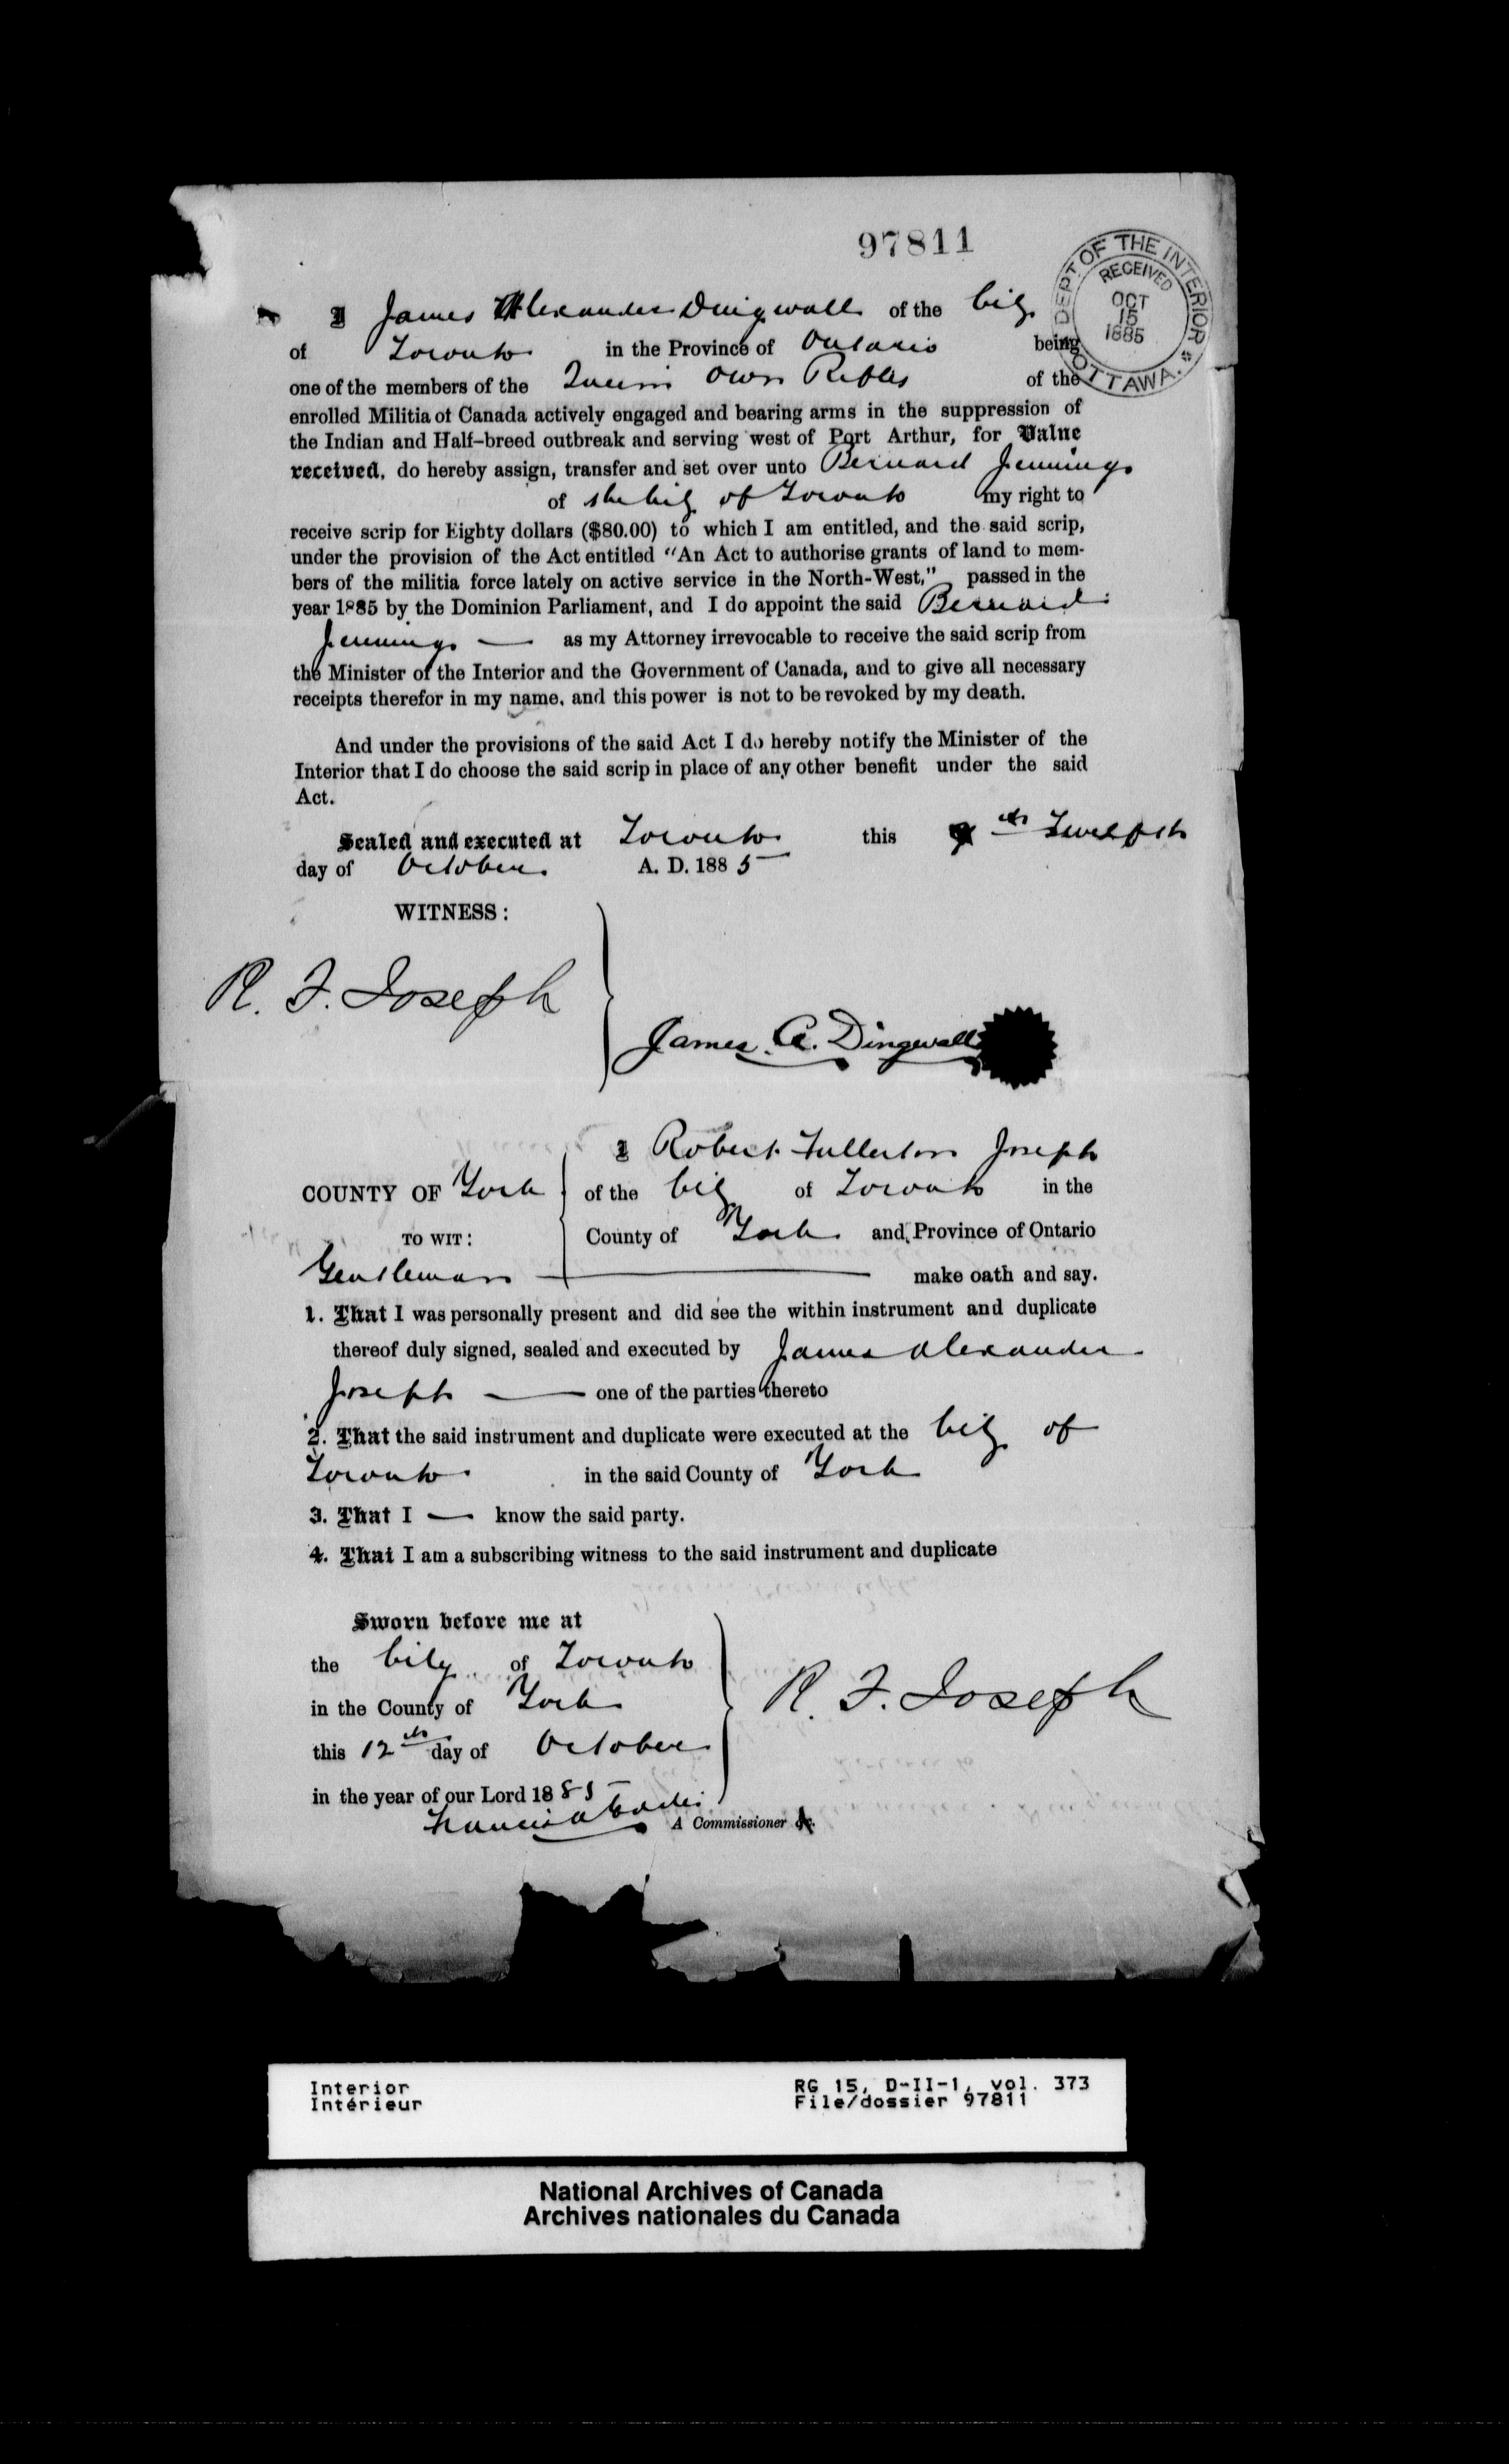 97811
DEPT OF THE INTERIOR
RECEIVED
OCT
15
1885
OTTAWA.
I James Alexander Dingwall of the City
of Toronto in the Province of Ontario being
one of the members of the Queen's Own Rifles of the
enrolled Militia of Canada actively engaged and bearing arms in the suppression of
the Indian and Half-breed outbreak and serving west of Port Arthur, for Value
received, do hereby assign, transfer and set over unto Bernard Jennings
of the City of Toronto my right to
receive scrip for Eighty dollars ($80.00) to which I am entitled, and the said scrip,
under the provision of the Act entitled "An Act to authorise grants of land to mem-
bers of the militia force lately on active service in the North-West," passed in the
year 1885 by the Dominion Parliament, and I do appoint the said Bernard
Jennings — as my Attorney irrevocable to receive the said scrip from
the Minister of the Interior and the Government of Canada, and to give all necessary
receipts therefor in my name, and this power is not to be revoked by my death.
And under the provisions of the said Act I do hereby notify the Minister of the
Interior that I do choose the said scrip in place of any other benefit under the said
Act.
Sealed and executed at Toronto this th Twelfth
day of October A. D. 1885
WITNESS:
R. F. Joseph
James A. Dingwall
I Robert Fullerton Joseph
COUNTY OF York of the City of Toronto in the
TO WIT: County of York and Province of Ontario
Gentleman — make oath and say.
1. That I was personally present and did see the within instrument and duplicate
thereof duly signed, sealed and executed by James Alexander
Joseph — one of the parties thereto
2. That the said instrument and duplicate were executed at the City of
Toronto in the said County of York
3. That I — know the said party.
4. That I am a subscribing witness to the said instrument and duplicate
Sworn before me at
the City of Toronto
in the County of York
this 12th day of October
in the year of our Lord 1885
R. F. Joseph
A Commissioner &c.
Interior
Intérieur
RG 15, D-II-1, vol. 373
File/dossier 97811
National Archives of Canada
Archives nationales du Canada